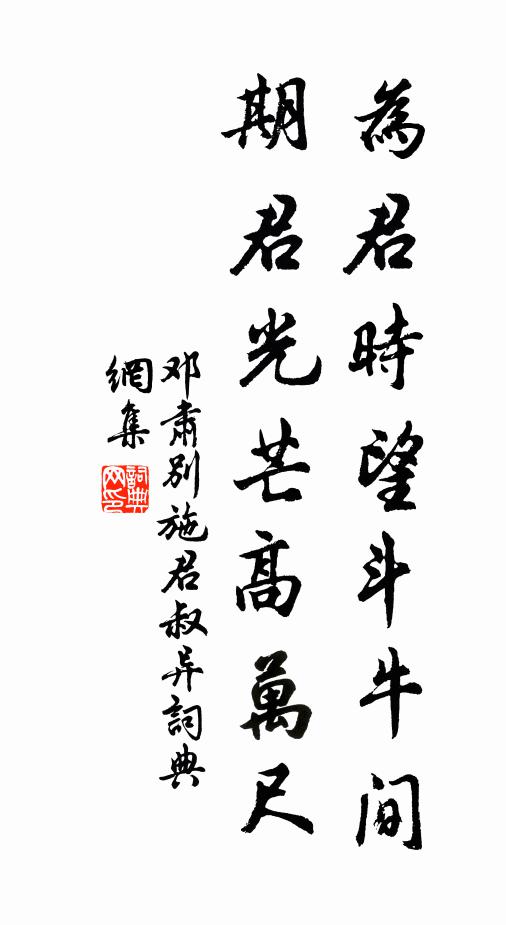 為君時望斗牛间
期君光芒高萬尺
邓肅别施君叔异詞典
網集
詞典网印